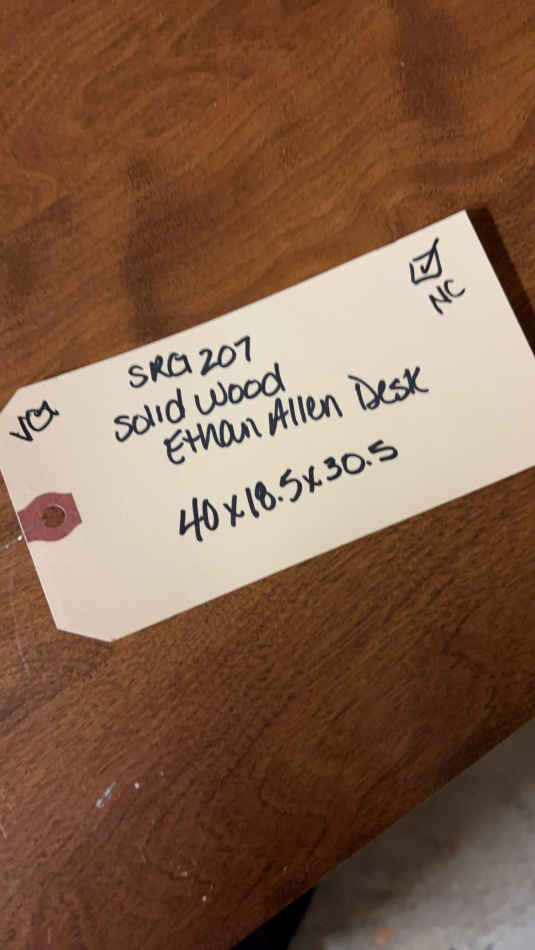 SRG 207
Solid Wood
Ethan Allen Desk
40x18.5x30.5
NC